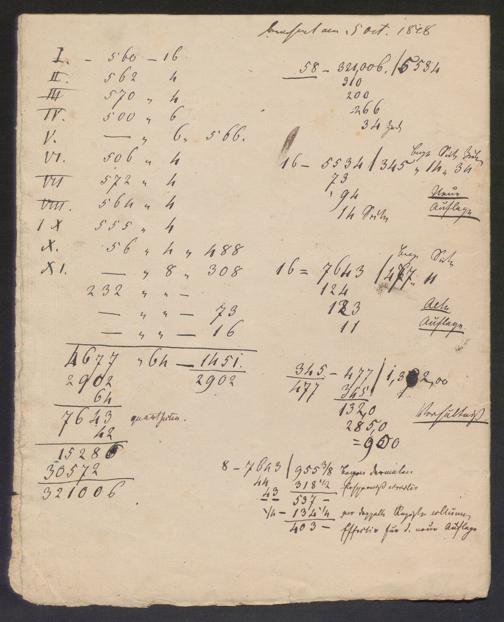 5 Oct. 1828
I. - 560 - 16
II. 562 4
III 570 " 4
IV. 500 " 6
V. — " 6 " 566.
VI. 506 " 4
VII 572 " 4
VIII. 564 " 4
IX 555 " 4
X. 56 " 4 " 488
XI. — " 8 " 308
232 " " —
— " " — 73
— " " — 16
4677 " 64 — 1451.
2902 2902
64
7643
42
15286
30572
321006
58 - 321,006. / 5534
310
200
266
34
16 - 5534 / 345 " 14 " 34
73
94
14
Neue
Auflage
16 = 7643 / 477 " 11
124
123
11
Alte
Auflage
345 - 477 / 1,382,00
477 345
1320
2850
= 900
Verhältniß
8 - 7643 / 955 3/8 Bogen
44 318 1/2
43 537 -
1/4 - 134 1/4
403 - für d. neue Auflage